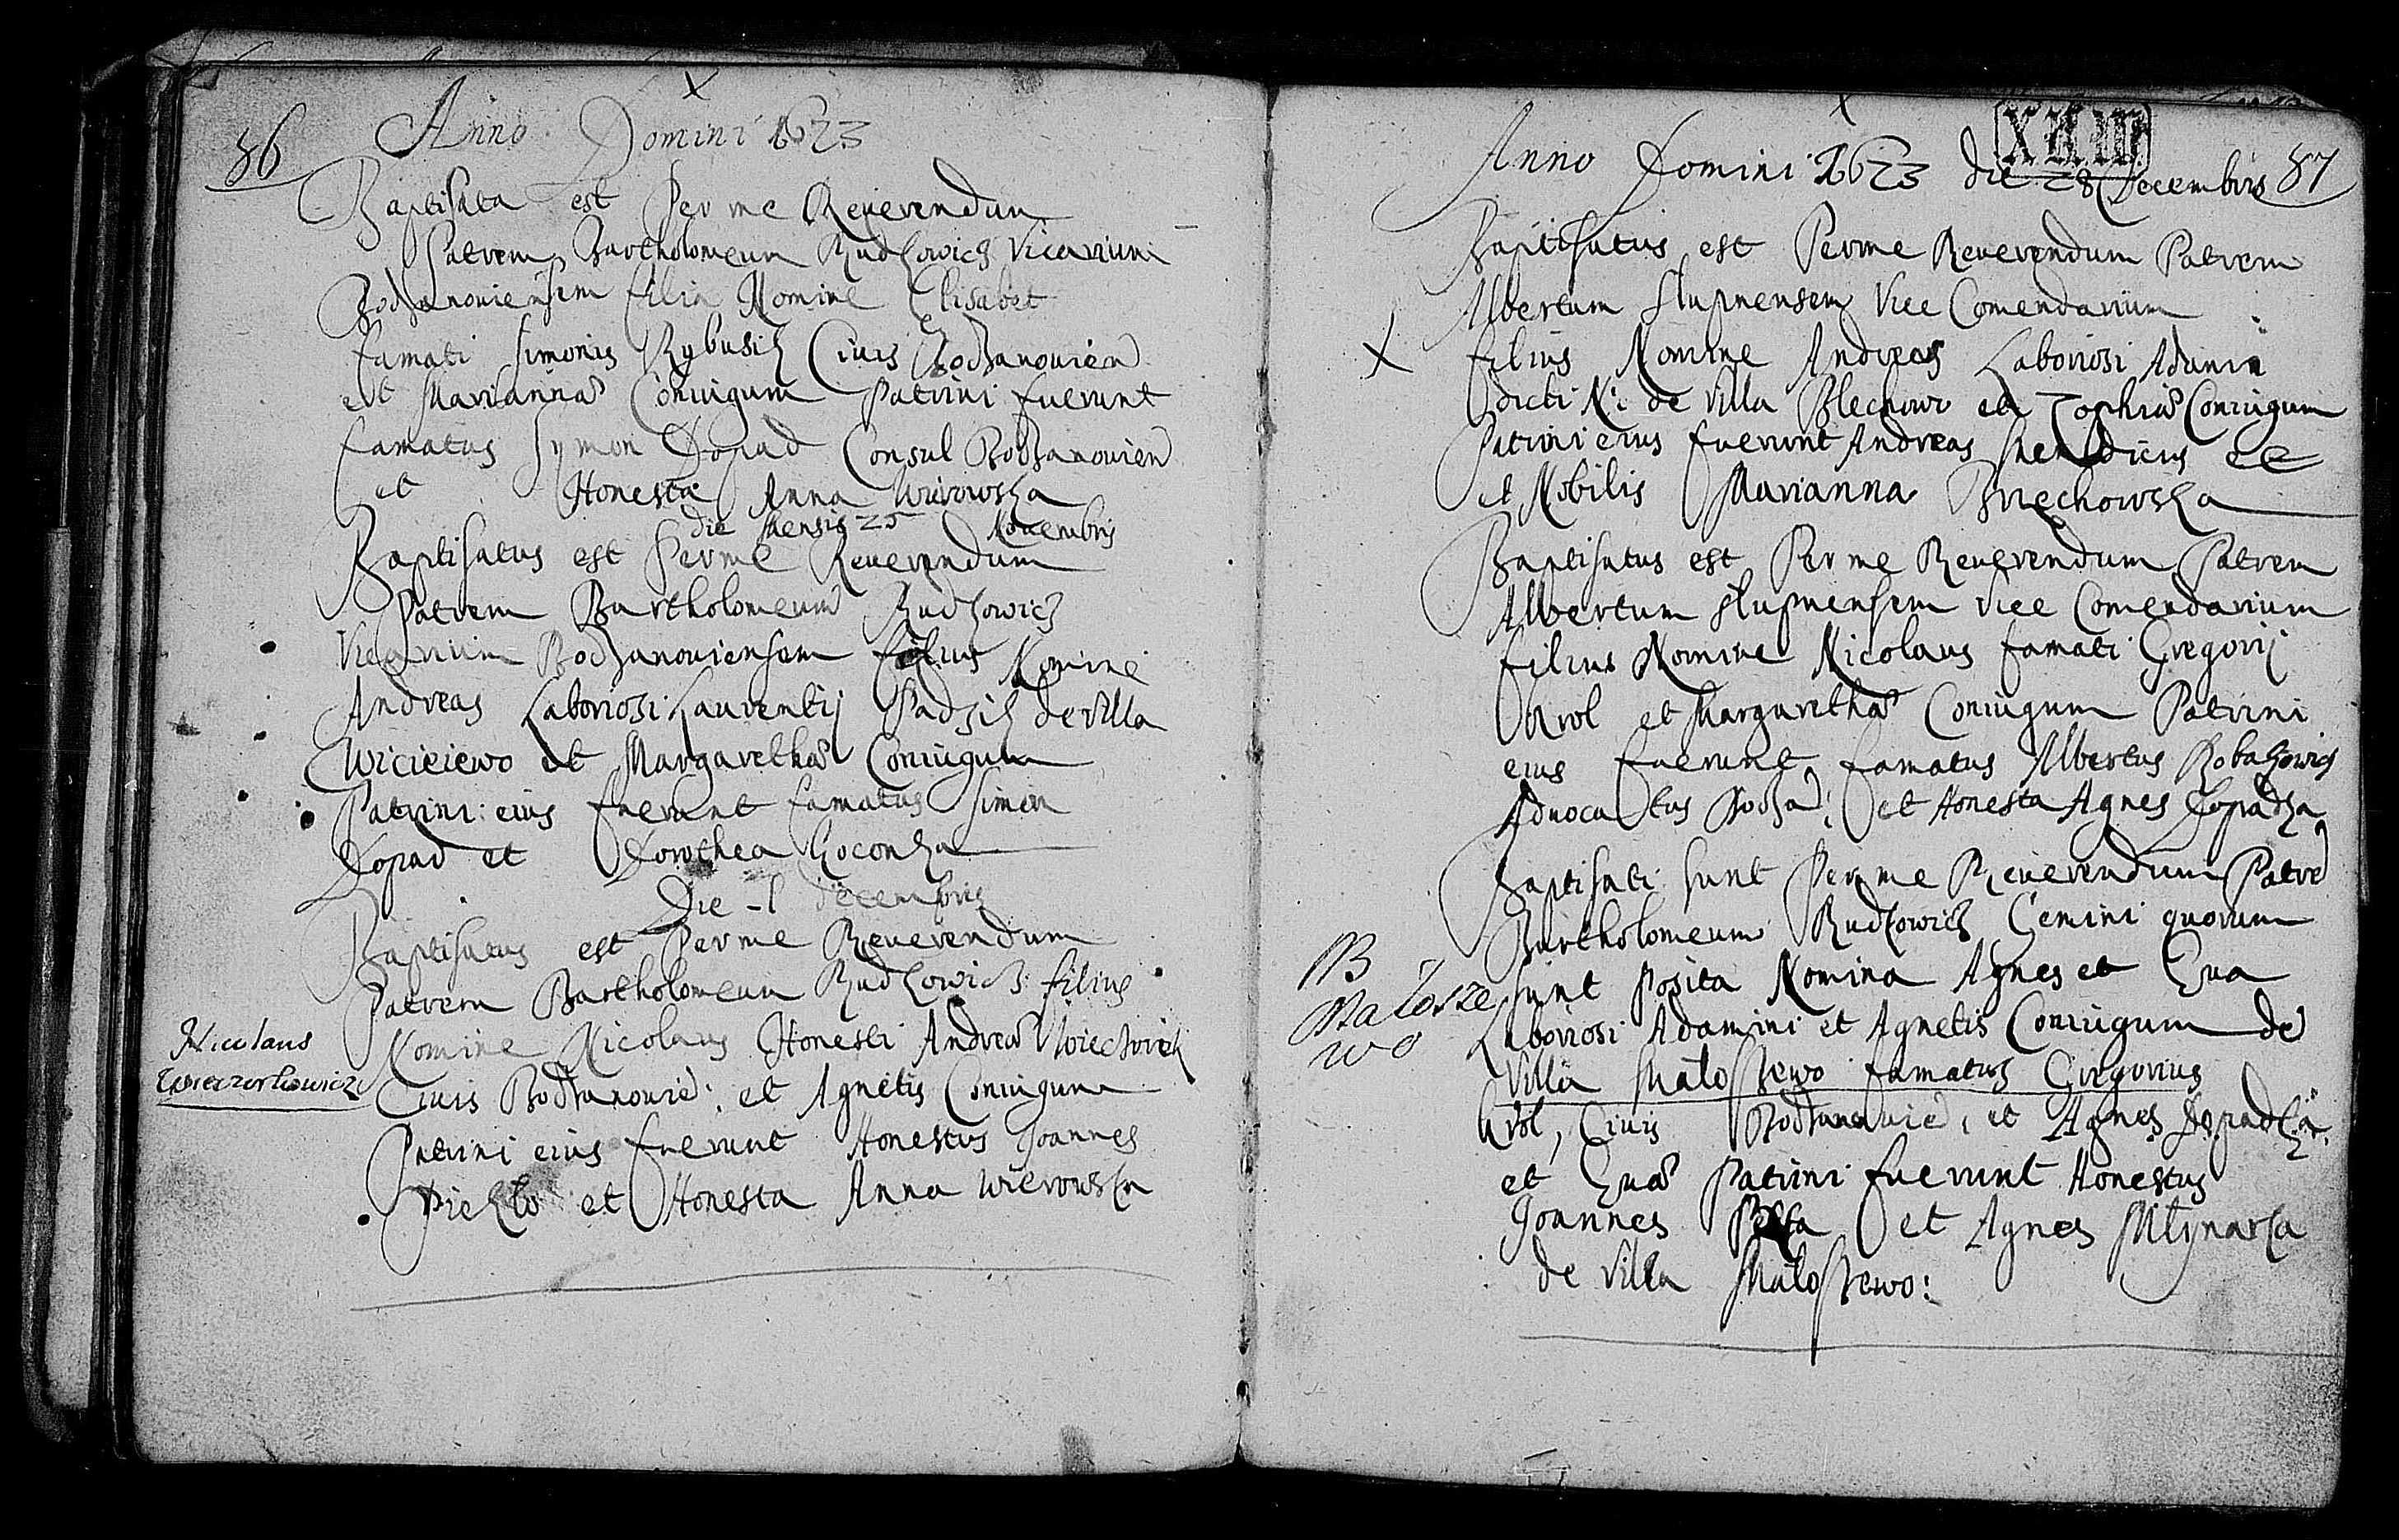 86
Anno Domini 1673
Baptisata est Per me Reuerendum
Patrem Bartholomeum Rudkowicz Vicarium
Bodzanouiensem filia Nomine Elisabet
famati Simonis Rybusik Ciuis Bodzanouien
et Mariannæ Coniugum Patrini fuerunt
famatus Symon Dopad Consul Bodzanouien
et Honesta Anna Wierowska
die Mensis 25 Nouembris
Baptisatus est Per me Reuerendum
Patrem Bartholomeum Rudkowicz
Vicarium Bodzanouiensem filius Nomine
Andreas Laboriosi Laurentij Padzik de Villa
et Margarethæ Coniugum
Patrini eius fuerunt famatus Simon
Dopad et Dorothea Goconka
Die 1 decembris
Baptisatus est Per me Reuerendum
Patrem Bartholomeum Rudkowicz filius
Nicolaus
Wieczorkowicz
Nomine Nicolaus Honesti Andreæ
Ciuis Bodzanouie: et Agnetis Coniugum
Patrini eius fuerunt Honestus Joannes
Pieklo et Honesta Anna Wierowska
XLIII
Anno Domini 1673 die 28 Decembris 87
Baptisatus est Per me Reuerendum Patrem
Albertum Slupnensem Vice Comendarium
X filius Nomine Andreas Laboriosi Adami
dicti N: de Villa Blechowo et Zophiæ Coniugum
Patrini eius fuerunt Andreas Mendicus et
et Nobilis Marianna Brzechowska
Baptisatus est Per me Reuerendum Patrem
Albertum Slupnensem Vice Comendarium
filius Nomine Nicolaus famati Gregorij
Krol et Margarethæ Coniugum Patrini
eius fuerunt famatus Albertus Robakowicz
Aduocatus Bodza: et Honesta Agnes Dopadka
Baptisati sunt Per me Reuerendum Patre
Bartholomeum Rudkowicz Gemini quorum
NB
Malosze
wo
sunt Posita Nomina Agnes et Eua
Laboriosi Adamini et Agnetis Coniugum de
Villa Maloszewo famatus Gregorius
Krol, Ciuis Bodzanouie, et Agnes Dopadka
et Euæ Patrini fuerunt Honestus
Joannes et Agnes Mlynarka
de Villa Maloszewo: